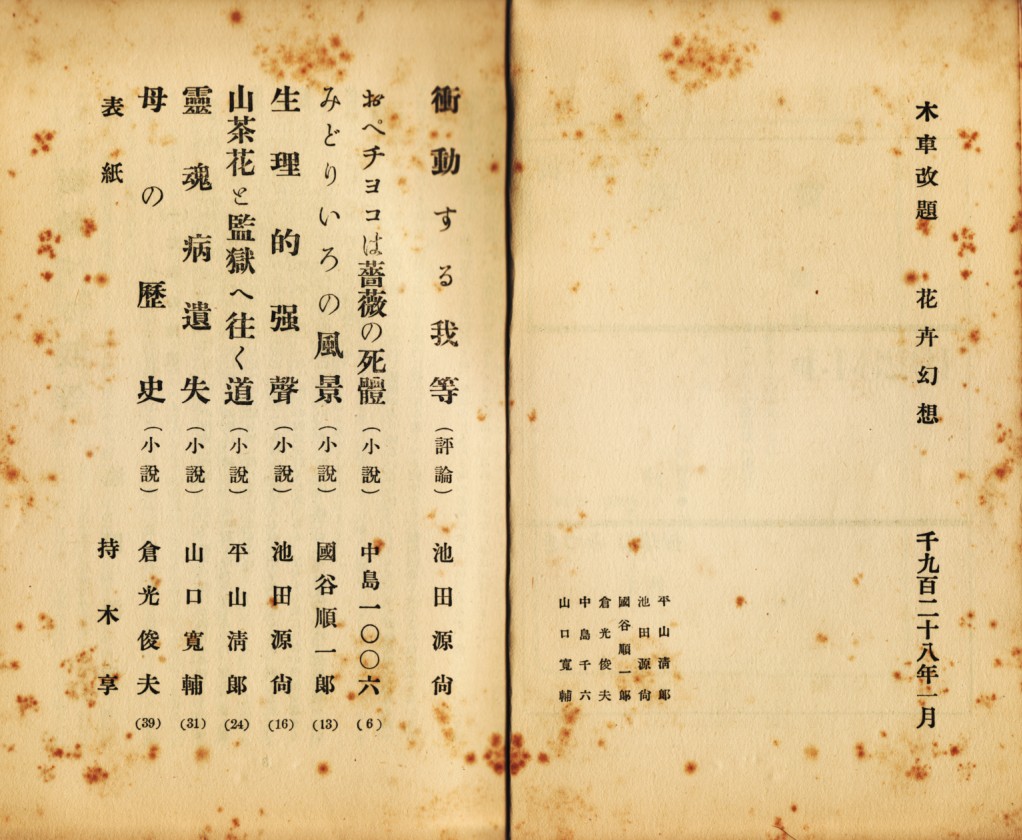 木車改題 花卉幻想 千九百二十八年一月
平山清郎
池田源尙
國谷順一郎
倉光俊夫
中島千六
山口寬輔
衝動する我等(評論) 池田源尙
おペチヨコは薔薇の死體(小說) 中島一〇〇六 (6)
みどりいろの風景(小說) 國谷順一郎 (13)
生理的强聲(小說) 池田源尙 (16)
山茶花と監獄へ往く道(小說) 平山淸郞 (24)
靈魂病遺失(小說) 山口寬輔 (31)
母の歷史(小說) 倉光俊夫 (39)
表紙 持木享